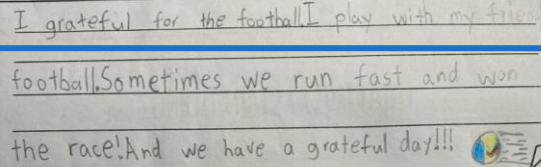 I grateful for the football.I play with my
football.Sometimes we run fast and won
the race!And we have a grateful day!!!